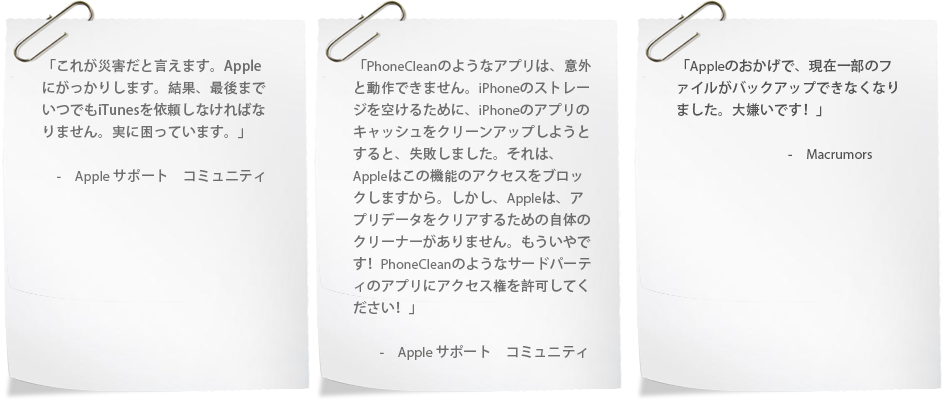 「これが災害だと言えます。Apple
にがっかりします。結果、最後まで
いつでもiTunesを依頼しなければな
りません。実に困っています。」
- Apple サポート コミュニティ
「PhoneCleanのようなアプリは、意外
と動作できません。iPhoneのストレー
ジを空けるために、iPhoneのアプリの
キャッシュをクリーンアップしようと
すると、失敗しました。それは、
Appleはこの機能のアクセスをブロッ
クしますから。しかし、Appleは、ア
プリデータをクリアするための自体の
クリーナーがありません。もういやで
す！PhoneCleanのようなサードパーテ
ィのアプリにアクセス権を許可してく
ださい！」
- Apple サポート コミュニティ
「Appleのおかげで、現在一部のフ
ァイルがバックアップできなくなり
ました。大嫌いです！」
- Macrumors